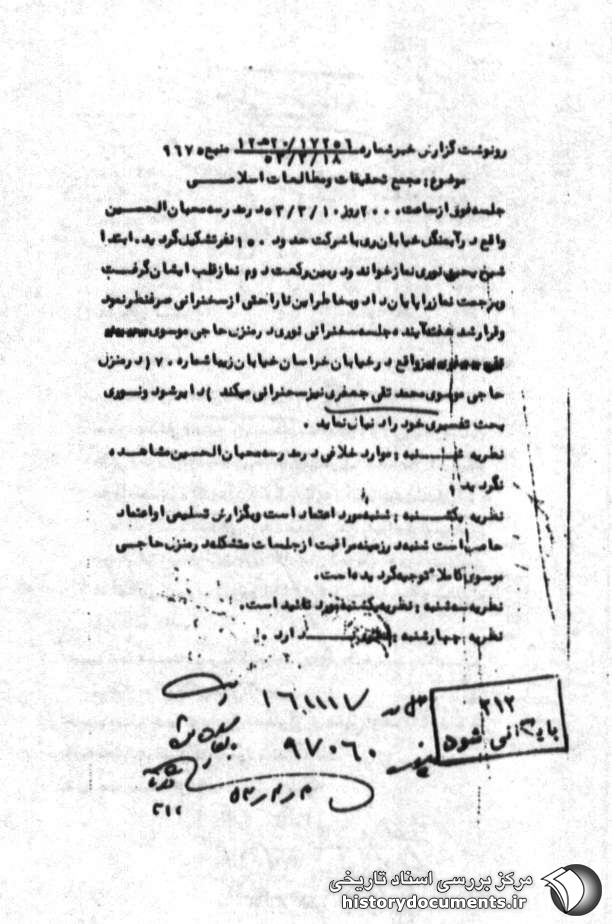 رونوشت گزارش خبر شماره ۱۷۲۵۶/۲۰هـ۱۲ منبع ۹۶۷۵
۵۳/۳/۱۸
موضوع : مجمع تحقیقات ومطالعات اسلامی
جلسه فوق از ساعت ۲۰۰۰ روز ۵۳/۳/۱۰ در مدرسه محبان الحسین
واقع در آبمنگل خیابان ری با شرکت حدود ۱۵۰ نفر تشکیل گردید . ابتدا
شیخ یحیی نوری نماز خواند و در بین رکعت دوم نماز قلب ایشان گرفت
و بزحمت نماز را پایان داد و بخاطر این ناراحتی از سخنرانی صرفنظر نمود
و قرار شد هفته آینده جلسه سخنرانی نوری در منزل حاجی موسوی
واقع در خیابان خراسان خیابان زیبا شماره ۱۷۰ (در منزل
حاجی موسوی محمد تقی جعفری نیز سخنرانی میکند ) دایر شود و نوری
بحث تفسیری خود را دنبال نماید .
نظریه شنبه : موارد خلافی در مدرسه محبان الحسین مشاهده
نگردید .
نظریه یکشنبه : شنبه مورد اعتماد است و بگزارش تسلیمی او اعتماد
حاصل است شنبه در زمینه مراقبت از جلسات متشکله در منزل حاجی
موسوی کاملا" توجیه گردیده است .
نظریه سه شنبه : نظریه یکشنبه مورد تائید است .
نظریه چهارشنبه : نظری ندارد .
۳۱۲
بایگانی شود
۱۶۰۱۱۱۷
۹۷۰۶۰
مرکز بررسی اسناد تاریخی
historydocuments.ir